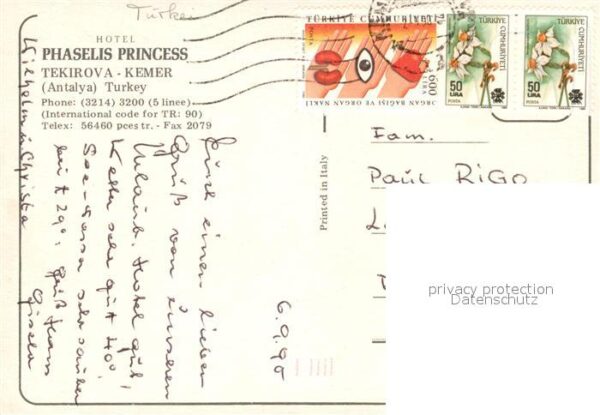 Türkei
HOTEL
PHASELIS PRINCESS
TEKIROVA - KEMER
(Antalya) Turkey
Phone: (3214) 3200 (5 linee)
(International code for TR: 90)
Telex: 56460 pces tr. - Fax 2079
TÜRKİYE CUMHURİYETİ
ORGAN BAĞIŞI VE ORGAN NAKLİ
600
LİRA
POSTA
TÜRKİYE CUMHURİYETİ
50
LİRA
POSTA
TÜRKİYE CUMHURİYETİ
50
LİRA
POSTA
Printed in Italy
Fam.
Paul RIGO
privacy protection
Datenschutz
6.9.90
einen lieben
Gruß von unserem
Urlaub. Hotel gut!
sehr gut 40°
sehr sauber
29°
Gisela
Wilhelm u. Christa